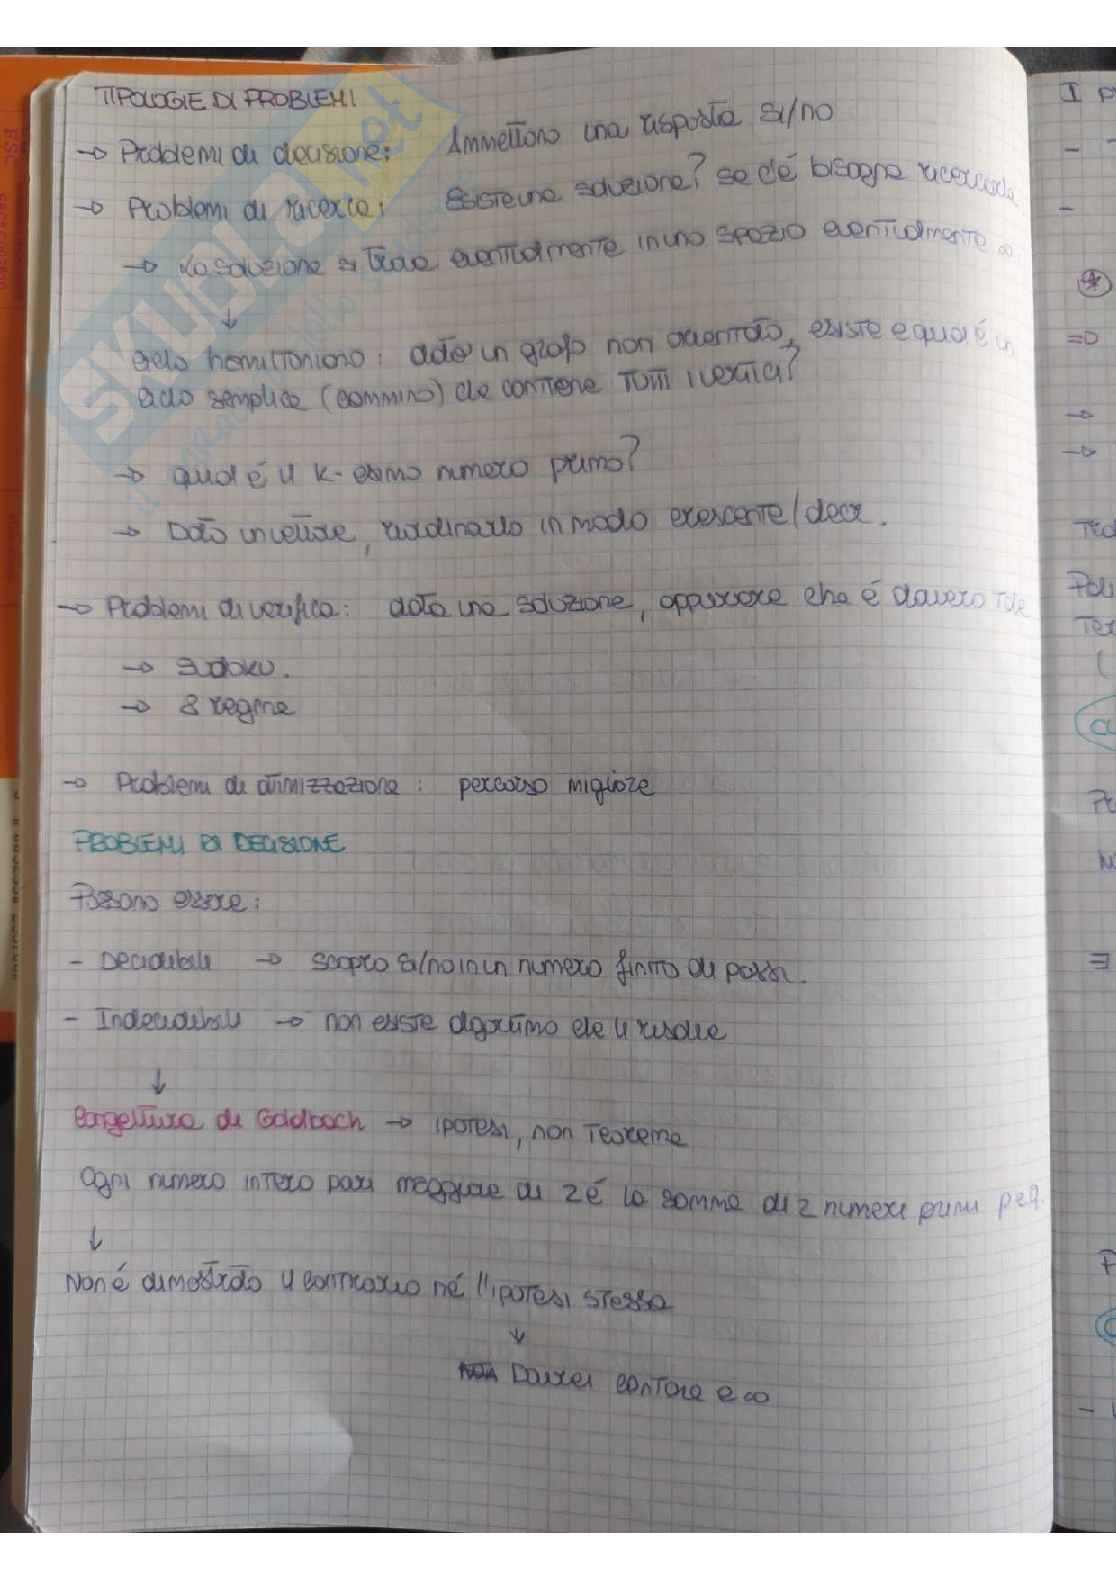 TIPOLOGIE DI PROBLEMI
→ Problemi di decisione: Ammettono una risposta si/no
→ Problemi di ricerca: Esiste una soluzione? se c'é bisogna ricercarla
→ La soluzione si trova eventualmente in uno spazio eventualmente ∞
↓
ciclo hamiltoniano: dato un grafo non orientato, esiste e qual é un
ciclo semplice (cammino) che contiene tutti i vertici?
→ qual é il k-esimo numero primo?
→ Dato un vettore, riordinarlo in modo crescente/decr.
→ Problemi di verifica: data una soluzione, appurare che é davvero tale
→ Sudoku.
→ 8 regine
→ Problemi di ottimizzazione: percorso migliore
PROBLEMI DI DECISIONE
Possono essere:
- Decidibili → scopro si/no in un numero finito di passi.
- Indecidibili → non esiste algoritmo che li risolve
↓
Congettura di Goldbach → ipotesi, non teorema
Ogni numero intero pari maggiore di 2 é la somma di 2 numeri primi
↓
Non é dimostrato il contrario né l'ipotesi stessa
↓
Dovrei contare a ∞
SKUOLA.net
I P
-
-
*
=>
→
→
Teo
Poli
Ter
(
P
-